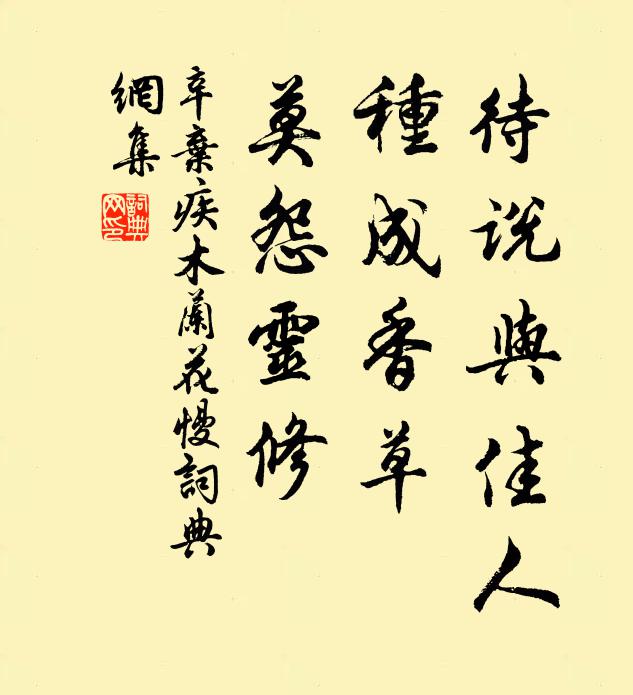 待説與佳人
種成香草
莫怨靈修
辛棄疾木蘭花慢詞典
網集
詞典
网印